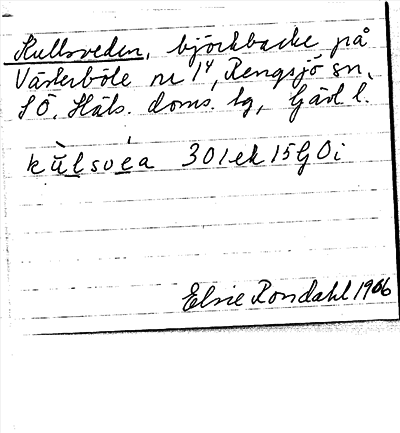 Kullsveden, björkbacke på
Västerböle nr 1⁴, Rengsjö sn,
SÖ. Häls. doms. lg, Gävl l.
kùlsvéa 301ek15GOi
Elsie Rondahl 1966